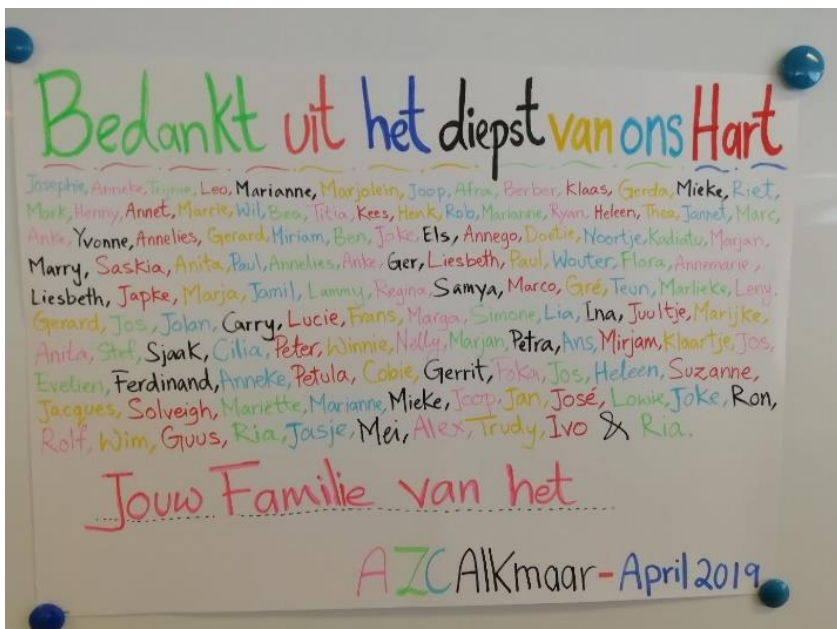 Bedankt uit het diepst van ons Hart
Josephie, Anneke, Trijnie, Leo, Marianne, Marjolein, Joop, Afra, Berber, Klaas, Gerda, Mieke, Riet,
Mark, Henny, Annet, Marrie, Wil, Bea, Titia, Kees, Henk, Rob, Marianne, Ryan, Heleen, Thea, Jannet, Marc,
Anka, Yvonne, Annelies, Gerard, Miriam, Ben, Joke, Els, Annego, Doetie, Noortje, Kadiatu, Marjan,
Marry, Saskia, Anita, Paul, Annelies, Anke, Ger, Liesbeth, Paul, Wouter, Flora, Annemarie,
Liesbeth, Japke, Marja, Jamil, Lammy, Regina, Samya, Marco, Gré, Teun, Marlieke, Leny.
Gerard, Jos, Jolan, Carry, Lucie, Frans, Marga, Simone, Lia, Ina, Juultje, Marijke,
Anita, Stef, Sjaak, Cilia, Peter, Winnie, Nelly, Marjan, Petra, Ans, Mirjam, Klaartje, Jos,
Evelien, Ferdinand, Anneke, Petula, Cobie, Gerrit, Foka, Jos, Heleen, Suzanne,
Jacques, Solveigh, Mariëtte, Marianne, Mieke, Joop, Jan, José, Lowie, Joke, Ron,
Rolf, Wim, Guus, Ria, Jasje, Mei, Alex, Trudy, Ivo & Ria.
Jouw Familie van het
AZC Alkmaar - April 2019